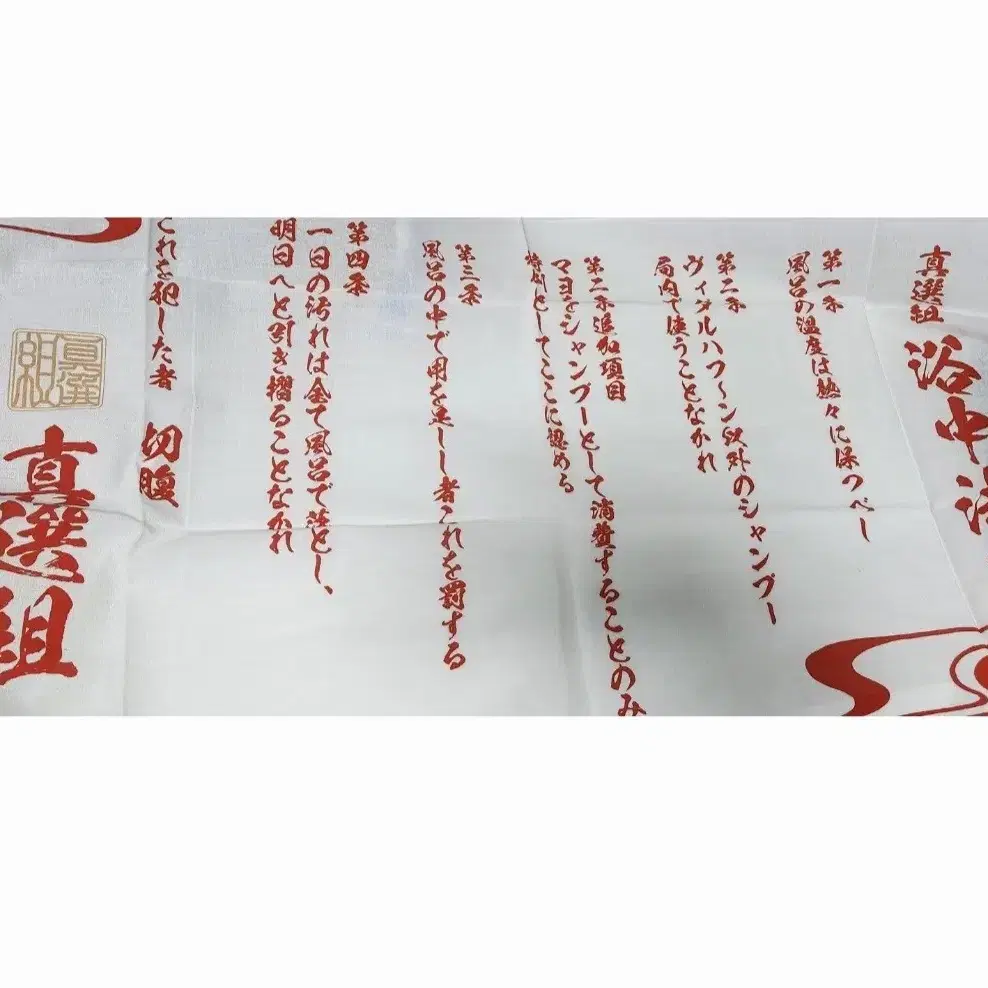 真選組
浴中法
第一条
風呂の温度は熱々に保つべし
第二条
ヴィダルハフ〜ン以外のシャンプー
局内で使うことなかれ
第二条追加項目
マヨをシャンプーとして消費することのみ
特例としてここに認める
第三条
風呂の中で用を足しし者これを罰する
第四条
一日の汚れは全て風呂で落とし、
明日へと引き摺ることなかれ
これを犯した者 切腹
真選組
真選組